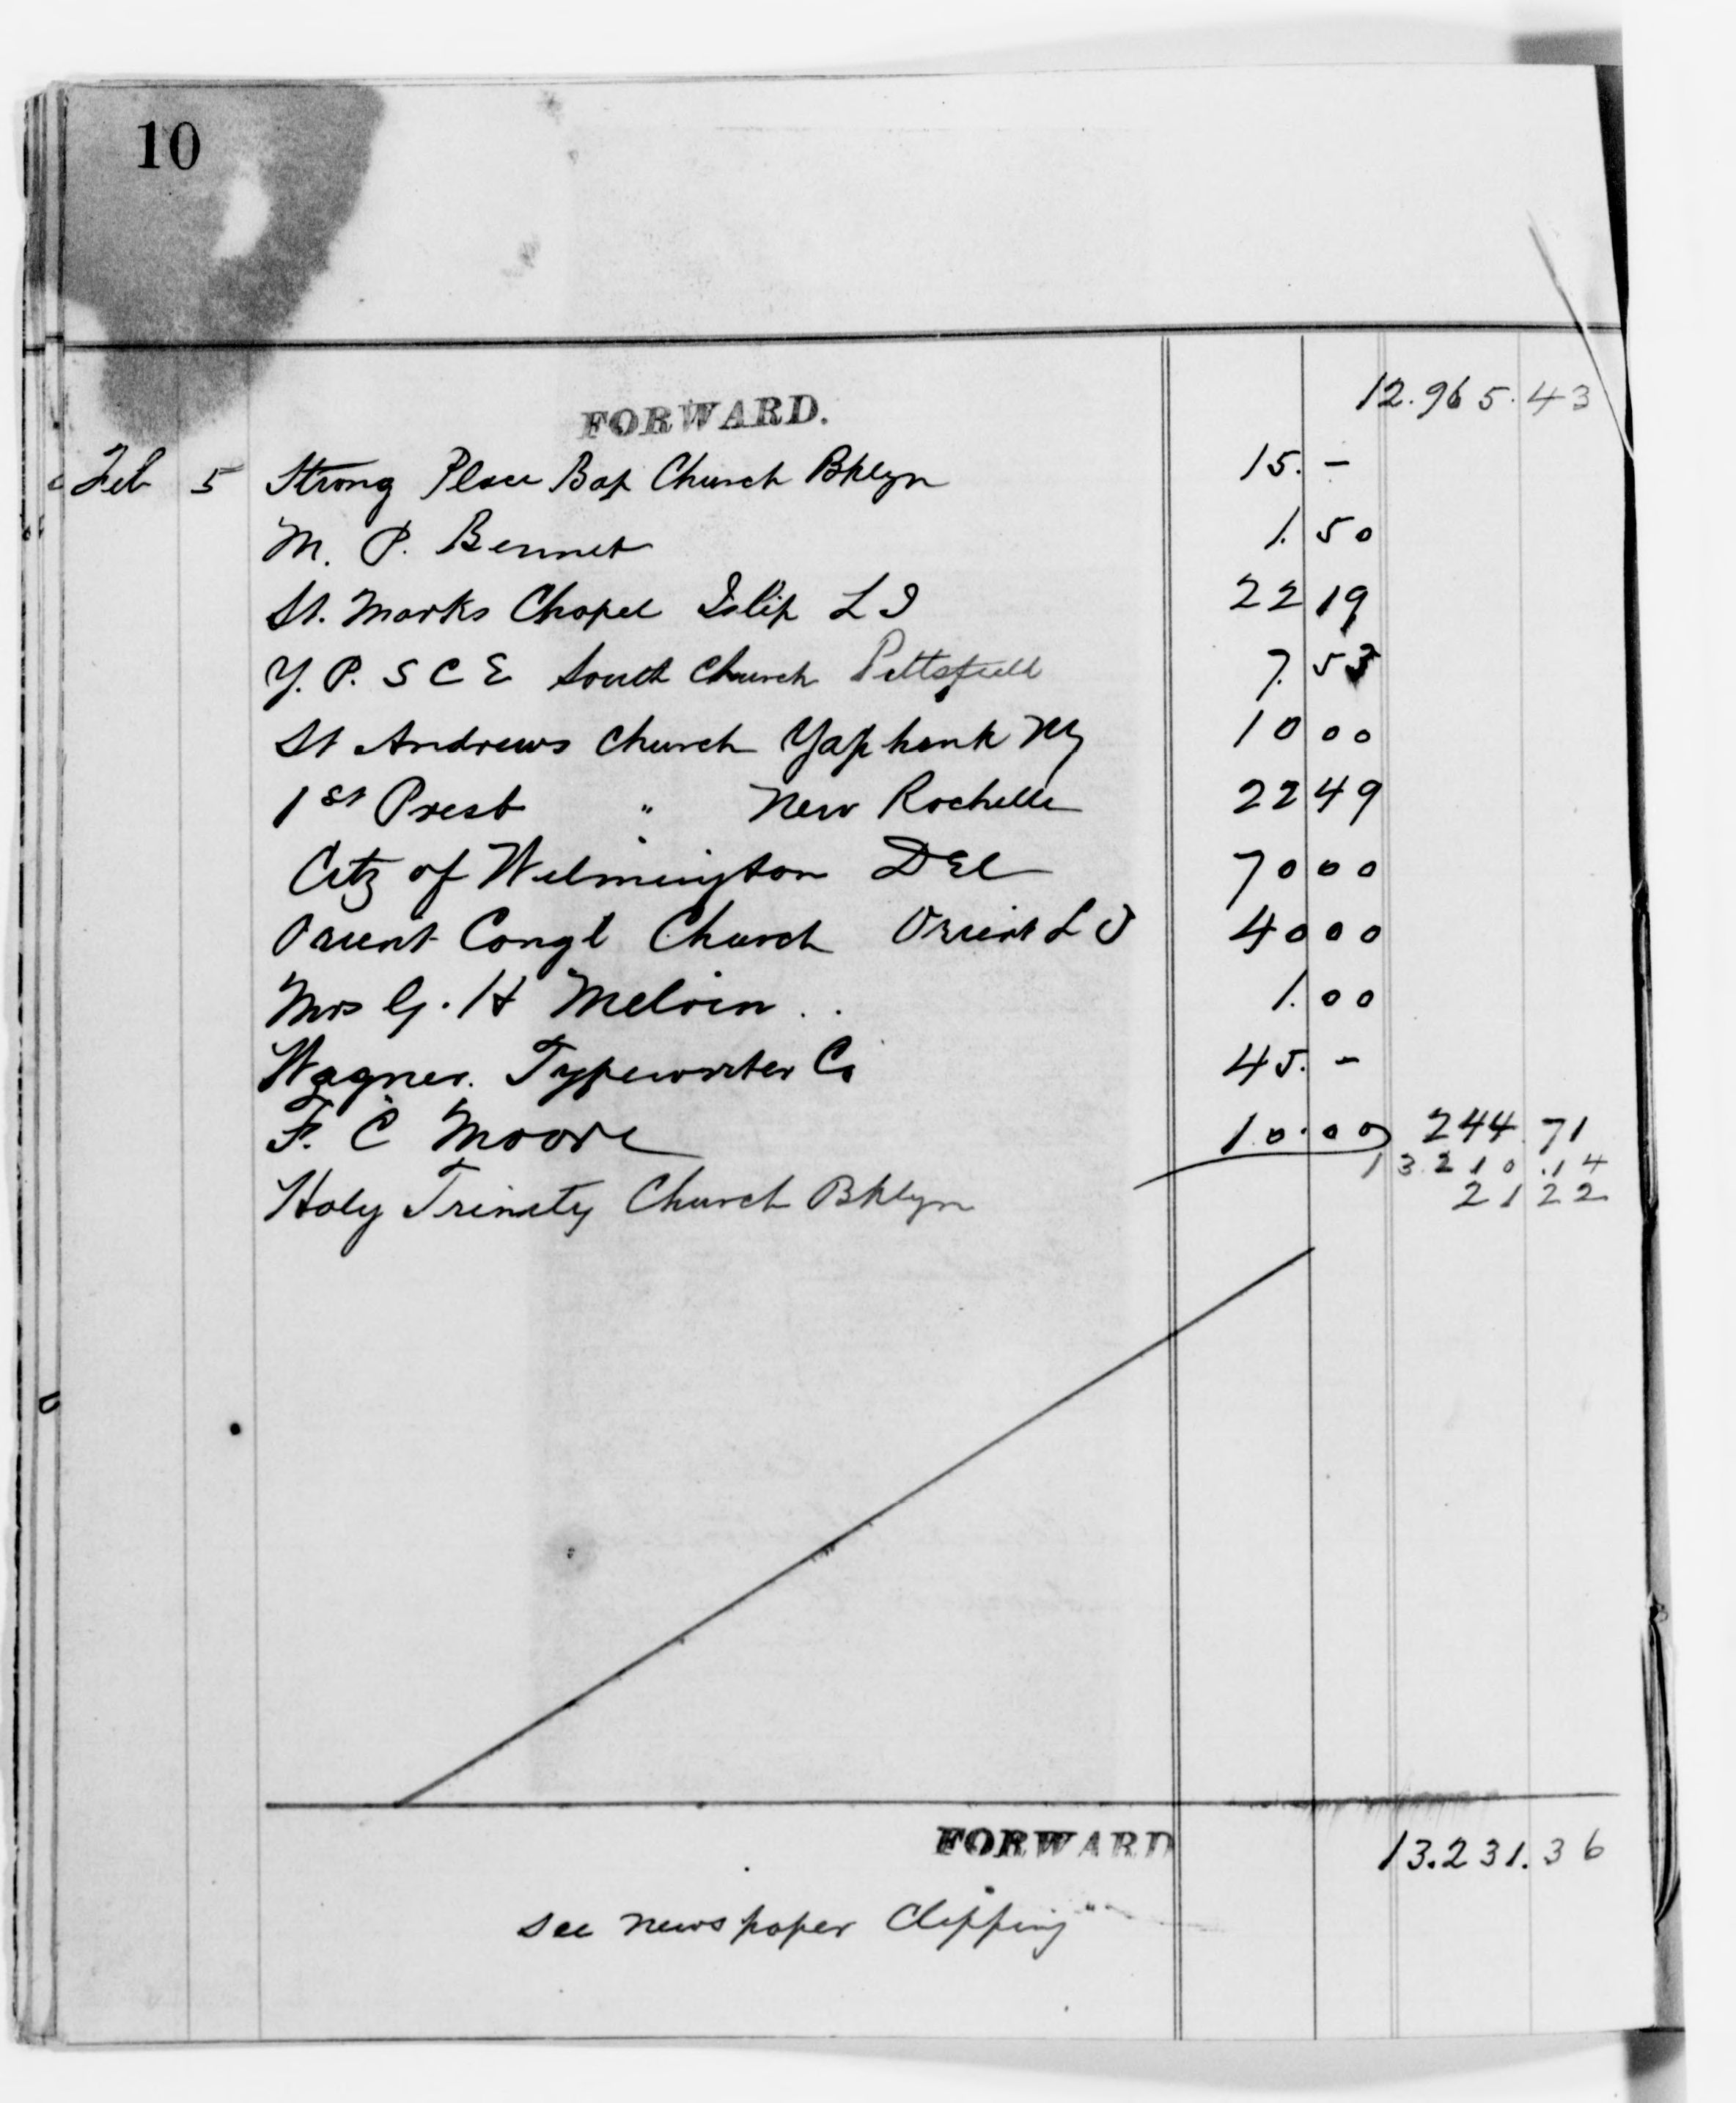 10
FORWARD. 12.965.43
Feb 5 Strong Place Bap Church Bklyn 15. -
M. P. Bennet 1. 50
St. Marks Chapel Islip L I 22 19
Y. P. S C E South Church Pittsfield 7. 53
St Andrews Church Yaphank NY 10 00
1st Presb " New Rochelle 22 49
City of Wilmington DEl 70 00
Orient Congl Church Orient L I 40 00
Mrs G. H Melvin . . 1. 00
Wagner. Typewriter Co 45. -
F. C Moore 10.00 244 71
13.210.14
Holy Trinity Church Bklyn 21 22
FORWARD 13.231.36
see newspaper Clipping